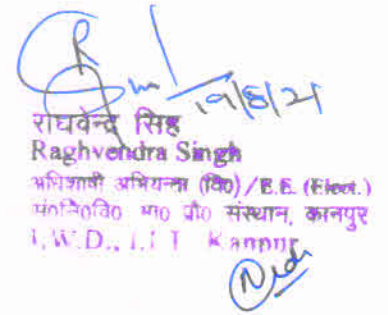 19/8/21
राघवेन्द्र सिंह
Raghvendra Singh
अधिशाषी अभियन्ता (वि0)/E.E. (Elect.)
सं0नि0वि0 भा0 प्रौ0 संस्थान, कानपुर
I.W.D., I.I.T. Kanpur